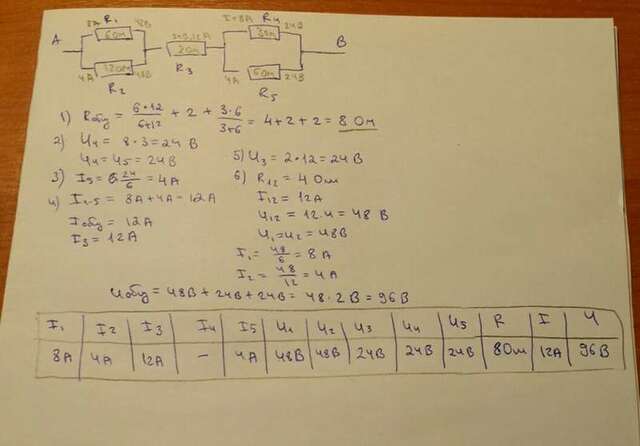 8A R₁ 48В I=8A R₄ 24В
A 6Ом 12A 3Ом B
2Ом
12Ом R₃ 6Ом
4A 48В 4A 24В
R₂ R₅
1) Rобщ = 6·12/6+12 + 2 + 3·6/3+6 = 4+2+2 = 8 Ом
2) U₄ = 8·3 = 24 В
U₄ = U₅ = 24В
3) I₅ = 24/6 = 4A
4) I₄₋₅ = 8A+4A = 12A
Iобщ = 12A
I₃ = 12A
5) U₃ = 2·12 = 24В
6) R₁₂ = 4 Ом
I₁₂ = 12A
U₁₂ = 12·4 = 48 В
U₁ = U₂ = 48В
I₁ = 48/6 = 8 A
I₂ = 48/12 = 4A
Uобщ = 48В + 24В + 24В = 48·2 В = 96В
I₁ I₂ I₃ I₄ I₅ U₁ U₂ U₃ U₄ U₅ R I U
8A 4A 12A — 4A 48В 48В 24В 24В 24В 8Ом 12A 96В